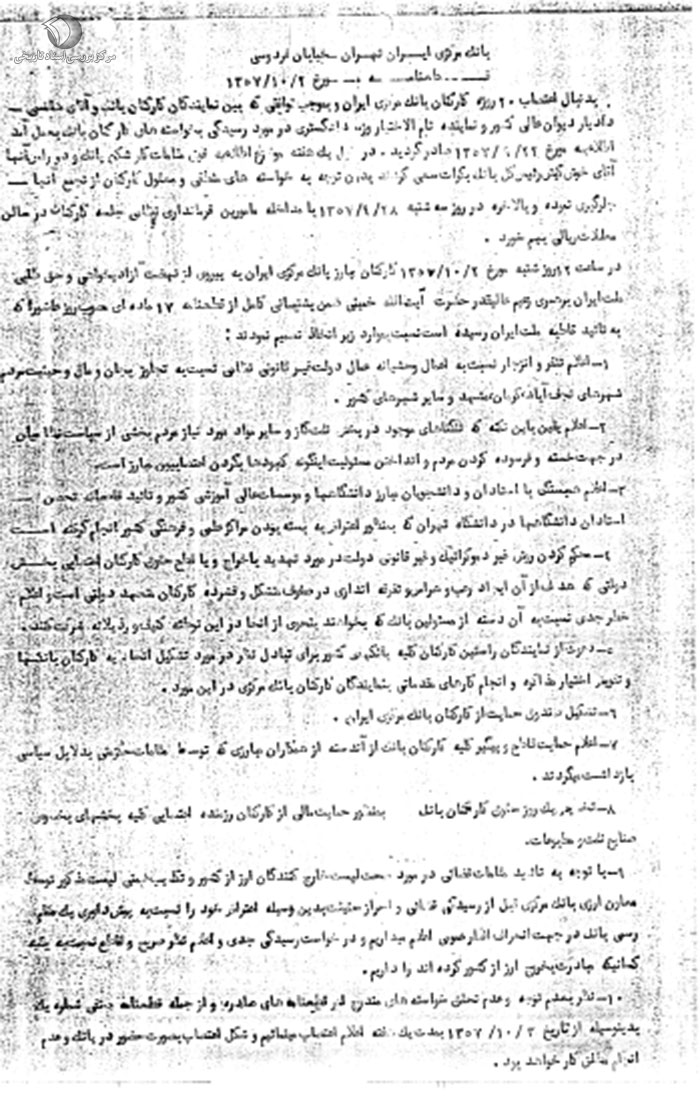 مرکز بررسی اسناد تاریخی
بانک مرکزی ایران تهران خیابان فردوسی
مورخ ۱۳۵۷/۱۰/۲
بدنبال اعتصاب ۲۰ روزه کارکنان بانک مرکزی ایران و بموجب توافقی که بین نمایندگان کارکنان بانک و آقای
دادیار دیوان عالی کشور و نماینده تام الاختیار وزیر دادگستری در مورد رسیدگی بخواسته های کارکنان بانک بعمل آمد
اطلاعیه مورخ صادر گردید . در یک هفته اطلاعیه فوق مقامات بانک و در راس آنها
آقای خوش کیش رئیس کل بانک بکرات سعی کردند بدون توجه به خواسته های منطقی و معقول کارکنان از تجمع آنها
جلوگیری نموده و بالاخره در روز سه شنبه ۱۳۵۷/۹/۲۸ با مداخله مامورین فرمانداری نظامی جلسه کارکنان در سالن
معاملات ریالی بهم خورد .
در ساعت ۱۲ روز شنبه مورخ ۱۳۵۷/۱۰/۲ کارکنان مبارز بانک مرکزی ایران به پیروی از نهضت آزادیخواهی و حق طلبی
ملت ایران برهبری زعیم عالیقدر حضرت آیت الله خمینی ضمن پشتیبانی کامل از قطعنامه ۱۷ ماده ای مصوب روز عاشورا که
به تائید قاطبه ملت ایران رسیده است نسبت بموارد زیر اتخاذ تصمیم نمودند :
۱- اعلام تنفر و انزجار نسبت به اعمال وحشیانه عمال دولت غیر قانونی نظامی نسبت به تجاوز بجان و مال و حیثیت مردم
شهرهای نجف آباد، کرمان، مشهد و سایر شهرهای کشور .
۲- اعلام یقین باین نکته که تنگناهای موجود در پخش نفت گاز و سایر مواد مورد نیاز مردم بخشی از سیاست نظامیان
در جهت خسته و فرسوده کردن مردم و انداختن مسئولیت اینگونه کمبودها بگردن اعتصابیون مبارز است.
۳- اعلام همبستگی با استادان و دانشجویان مبارز دانشگاهها و موسسات عالی آموزشی کشور و تائید تحصن
استادان دانشگاهها در دانشگاه تهران که بمنظور اعتراض به بسته بودن مراکز علمی و فرهنگی کشور انجام گرفته است
۴- محکوم کردن روش غیر دموکراتیک و غیر قانونی دولت در مورد تهدید باخراج و یا قطع حقوق کارکنان اعتصابی بخش
دولتی که هدف از آن ایجاد رعب و هراس و تفرقه اندازی در صفوف متشکل و فشرده کارکنان متعهد دولتی است و اعلام
خطر جدی نسبت به آن دسته از مسئولین بانک که بخواهند بنحوی از انحا در این توطئه کثیف و رذیلانه شرکت کنند .
۵- دعوت از نمایندگان راستین کارکنان کلیه بانکهای کشور برای تبادل نظر در مورد تشکیل اتحادیه کارکنان بانکها
و تفویض اختیار مذاکره و انجام کارهای مقدماتی بنمایندگان کارکنان بانک مرکزی در این مورد .
۶- تشکیل صندوق حمایت از کارکنان بانک مرکزی ایران .
۷- اعلام حمایت قاطع و پیگیر کلیه کارکنان بانک از آندسته از همکاران مبارزی که توسط مقامات حکومتی بدلایل سیاسی
بازداشت میگردند .
۸- تخصیص یک روز حقوق کارکنان بانک بمنظور حمایت مالی از کارکنان رزمنده اعتصابی کلیه بخشهای بخصوص
صنایع نفت و مطبوعات.
۹- با توجه به تائید مقامات قضائی در مورد صحت لیست خارج کنندگان ارز از کشور و تکذیب ضمنی لیست مذکور توسط
معاون ارزی بانک مرکزی قبل از رسیدگی قضائی و احراز حقیقت بدین وسیله اعتراض خود را نسبت به پیش داوری یک مقام
رسمی بانک در جهت انحراف افکار عمومی اعلام میداریم و درخواست رسیدگی جدی و اعلام نظر صریح و قاطع نسبت به بقیه
کسانیکه مبادرت بخروج ارز از کشور کرده اند را داریم .
۱۰- نظر بعدم توجه و عدم تحقق خواسته های مندرج در قطعنامه های صادره و از جمله قطعنامه شماره یک
بدینوسیله از تاریخ ۱۳۵۷/۱۰/۳ بمدت یک هفته اعلام اعتصاب مینمائیم و شکل اعتصاب بصورت حضور در بانک و عدم
انجام مطلق کار خواهد بود .